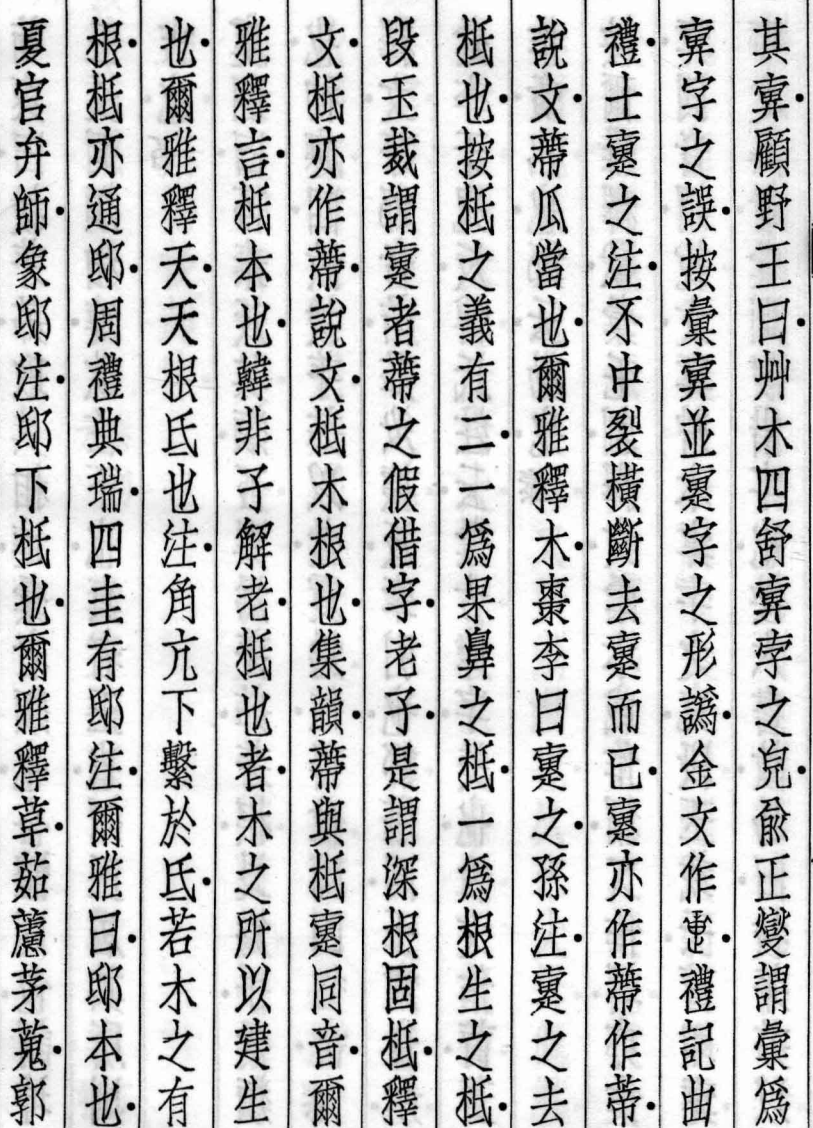 其㝔。顧野王曰。艸木四舒㝔孛之皃。俞正燮謂彙爲
㝔字之誤。按彙㝔並疐字之形譌。金文作。禮記曲
禮。士疐之注。不中裂橫斷去疐而已。疐亦作蔕作蒂。
說文。蔕瓜當也。爾雅釋木。棗李曰疐之。孫注。疐之去
柢也。按柢之義有二。一爲果鼻之柢。一爲根生之柢。
段玉裁謂疐者蔕之假借字。老子。是謂深根固柢。釋
文。柢亦作蔕。說文。柢木根也。集韻。蔕與柢疐同音。爾
雅釋言。柢本也。韓非子解老。柢也者。木之所以建生
也。爾雅釋天。天根氐也注。角亢下繫於氐。若木之有
根。柢亦通邸。周禮典瑞。四圭有邸注。爾雅曰。邸本也。
夏官弁師。象邸注。邸下柢也。爾雅釋草。茹藘茅蒐。郭